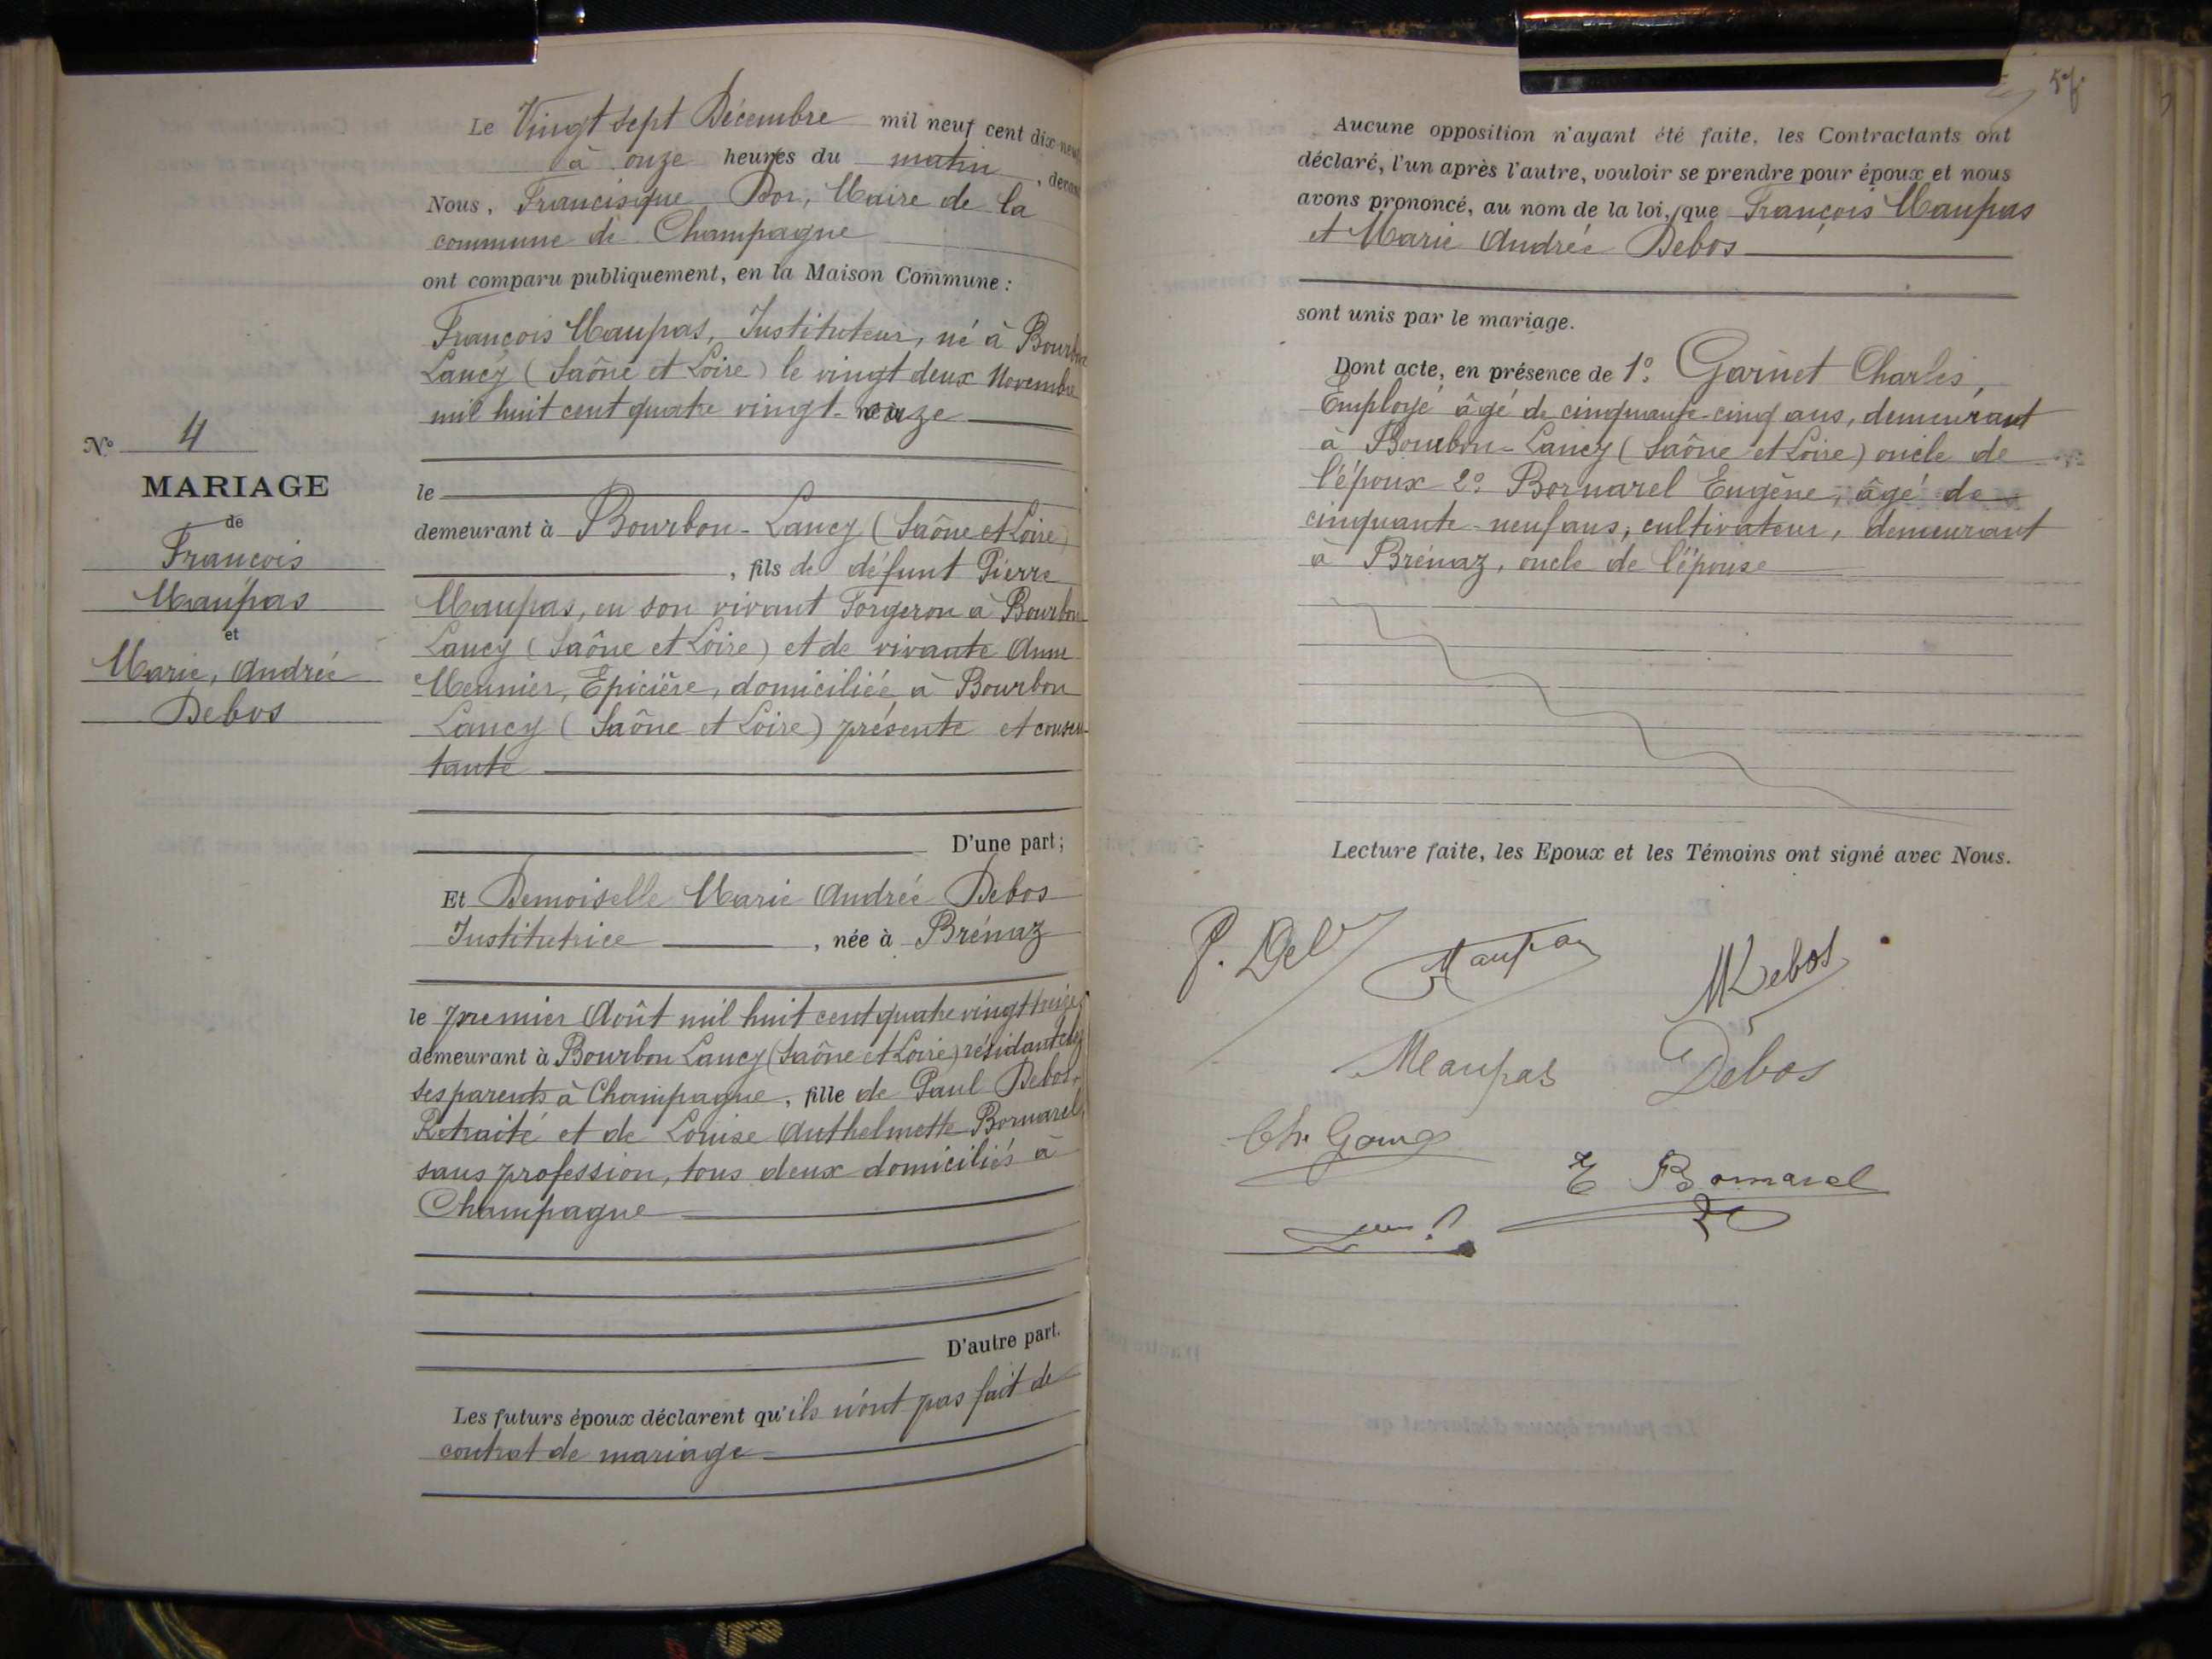 Le Vingt sept Décembre mil neuf cent dix-neuf
à onze heures du matin, devant
Nous, Francisque Bor, Maire de la
commune de Champagne
ont comparu publiquement, en la Maison Commune :
François Maupas, Instituteur, né à Bourbon
Lancy (Saône et Loire) le vingt deux Novembre
mil huit cent quatre vingt-
le
demeurant à Bourbon-Lancy (Saône et Loire)
, fils de défunt Pierre
Maupas, en son vivant Forgeron à Bourbon-
Lancy (Saône et Loire) et de vivante Anne
Meunier, Epicière, domiciliée à Bourbon
Lancy (Saône et Loire) présente et consen-
tante
D'une part ;
Et Demoiselle Marie Andrée Debos
Institutrice, née à Brénaz
le premier Août mil huit cent quatre vingt treize
demeurant à Bourbon Lancy (Saône et Loire) résidant chez
ses parents à Champagne, fille de Paul Debos,
Retraité et de Louise Anthelmette Bornarel,
sans profession, tous deux domiciliés à
Champagne
D'autre part.
Les futurs époux déclarent qu'ils n'ont pas fait de
contrat de mariage
N° 4
MARIAGE
de
François
Maupas
et
Marie, Andrée
Debos
57
Aucune opposition n'ayant été faite, les Contractants ont
déclaré, l'un après l'autre, vouloir se prendre pour époux et nous
avons prononcé, au nom de la loi, que François Maupas
et Marie Andrée Debos
sont unis par le mariage.
Dont acte, en présence de 1° Garnet Charles,
Employé âgé de cinquante-cinq ans, demeurant
à Bourbon-Lancy (Saône et Loire) oncle de
l'époux 2° Bornarel Eugène, âgé de
cinquante-neuf ans, cultivateur, demeurant
à Brénaz, oncle de l'épouse
Lecture faite, les Epoux et les Témoins ont signé avec Nous.
Maupas
MDebos
Maupas
Debos
E Bornarel